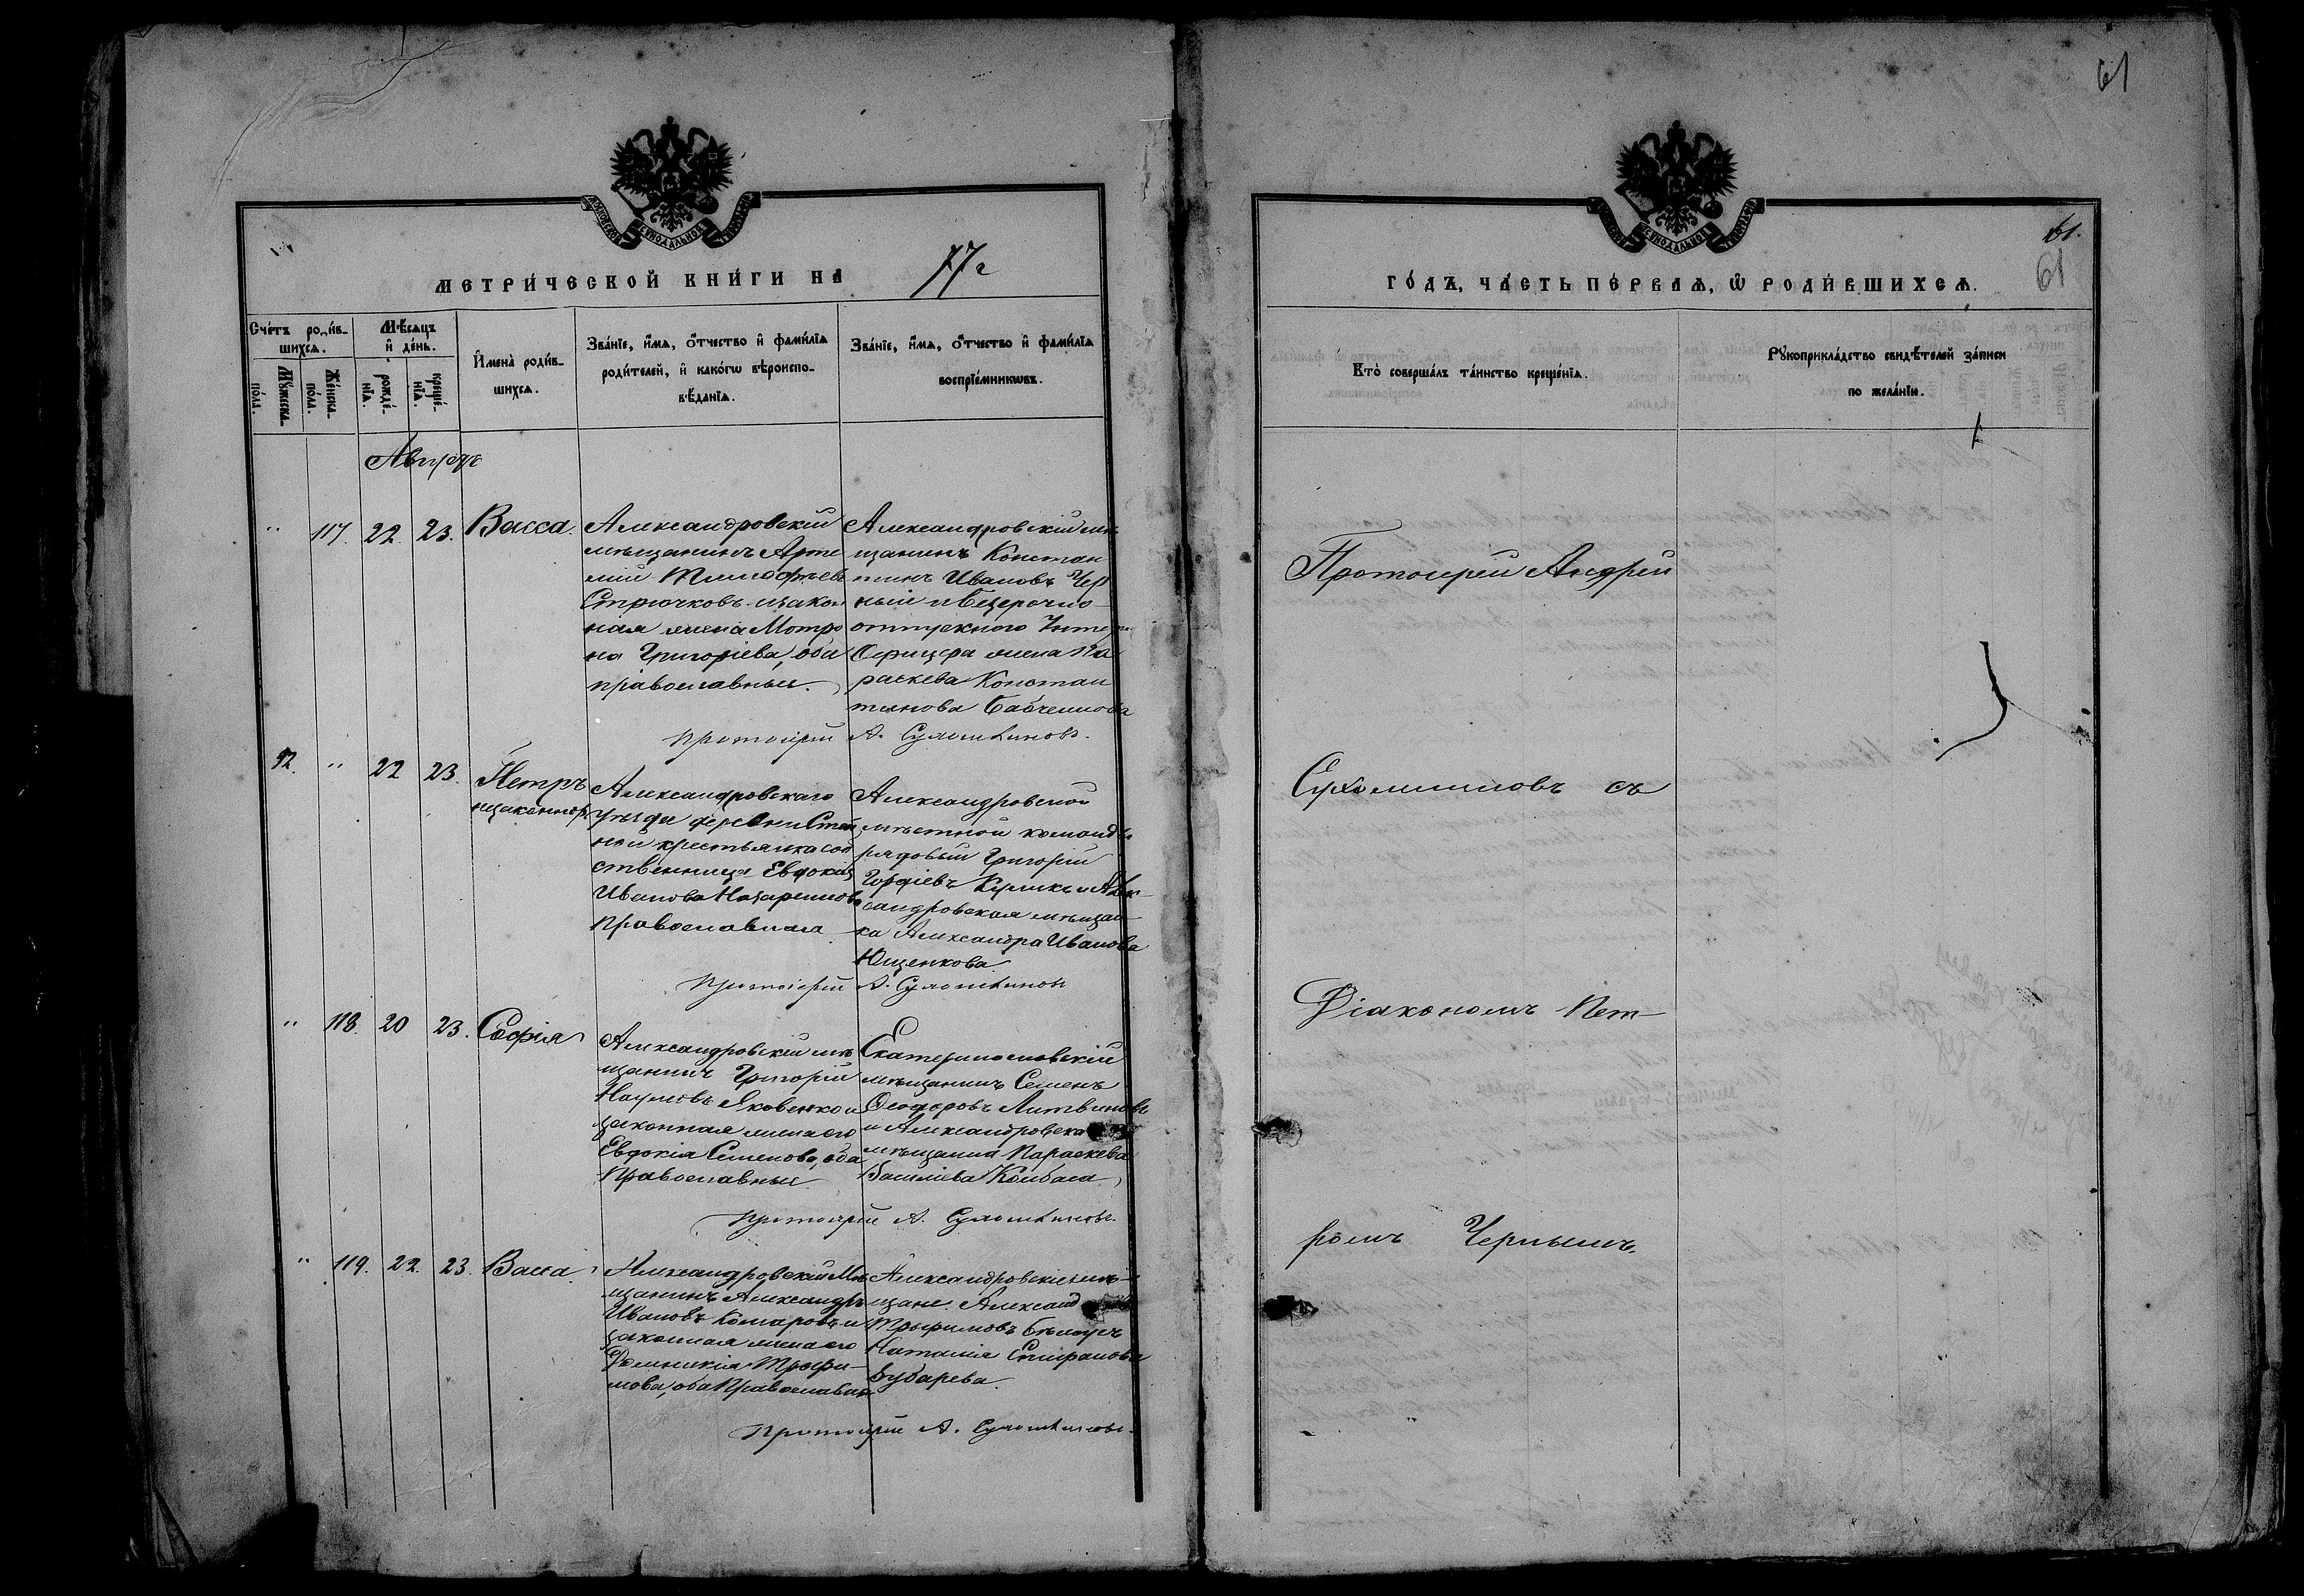 61
МОСКОВСКОЙ СѴНОДАЛЬНОЙ ТИПОГРАФІИ
МЕТРИ́ЧЕСКОЙ КНИ́ГИ НА 77 г
Сче́тъ роди́в-
шихсѧ.
Мѹжеска
по́ла.
Же́нска
по́ла.
Мѣ́сѧцъ
и҆ де́нь.
рожде́-
нїѧ.
креще́-
нїѧ.
И҆мена̀ роди́в-
шихсѧ.
Зва́нїе, и҆́мѧ, ѻ҆́тчество и҆ фами́лїѧ
роди́телей, и҆ како́гѡ вѣроиспо-
вѣ́данїѧ.
Зва́нїе, и҆́мѧ, ѻ҆́тчество и҆ фами́лїѧ
воспрїе́мникѡвъ.
Августъ
" 117. 22. 23. Васса.
Александровскій
мѣщанинъ Арте
мій Тимофѣевъ
Стрючковъ и закон
ная жена Матро
на Григоріева, оба
православные.
Александровскій мѣ
щанинъ Констан
тинъ Ивановъ Чер
ный и безсрочно-
отпускного Унтеръ
Офицера жена Па
раскева Констан
тинова Бабченкова
Протоіерей А. Сухомлиновъ.
92. " 22 23. Петръ
незаконнор
Александровскаго
уѣзда деревни Степ
ной крестьянка соб
ственница Евдокія
Иванова Назаренкова
Православная
Александровской
мѣстной команды
рядовый Григорій
Гордіевъ Куликъ и Алек-
сандровская мѣщан-
ка Александра Иванова
Ющенкова.
Протоіерей А. Сухомлиновъ
" 118. 20 23. Софія
Александровскій мѣ
щанинъ Григорій
Наумовъ Яковенко и
законная жена его
Евдокія Семенова, оба
Православные
Екатеринославскій
мѣщанинъ Семенъ
Феодоровъ Литвиновъ
и Александровска
мѣщанка Параскева
Василіева Колбаса
Протоіерей А. Сухомлиновъ.
" 119. 22. 23. Васса.
Александровскій Мѣ
щанинъ Александръ
Ивановъ Комаровъ и
законная жена его
Домникія Трофи-
мова, оба Православн
Александровскіе мѣ-
щане Александ
Трофимовъ Бѣлоусъ
Наталія Стефанова
Зубарева.
Протоіерей А. Сухомлиновъ.
МОСКОВСКОЙ СѴНОДАЛЬНОЙ ТИПОГРАФІИ
61.
61
ГО́ДЪ, ЧА́СТЬ ПЕ́РВАѦ, Ѡ҆ РОДИ́ВШИХСѦ.
Кто̀ соверша́лъ та́инство креще́нїѧ.
Рѹкоприкла́дство свидѣ́телей за́писи
по жела́нїю.
Протоіерей Андрей
Сухомлиновъ съ
Діакономъ Пет-
ромъ Чернымъ.